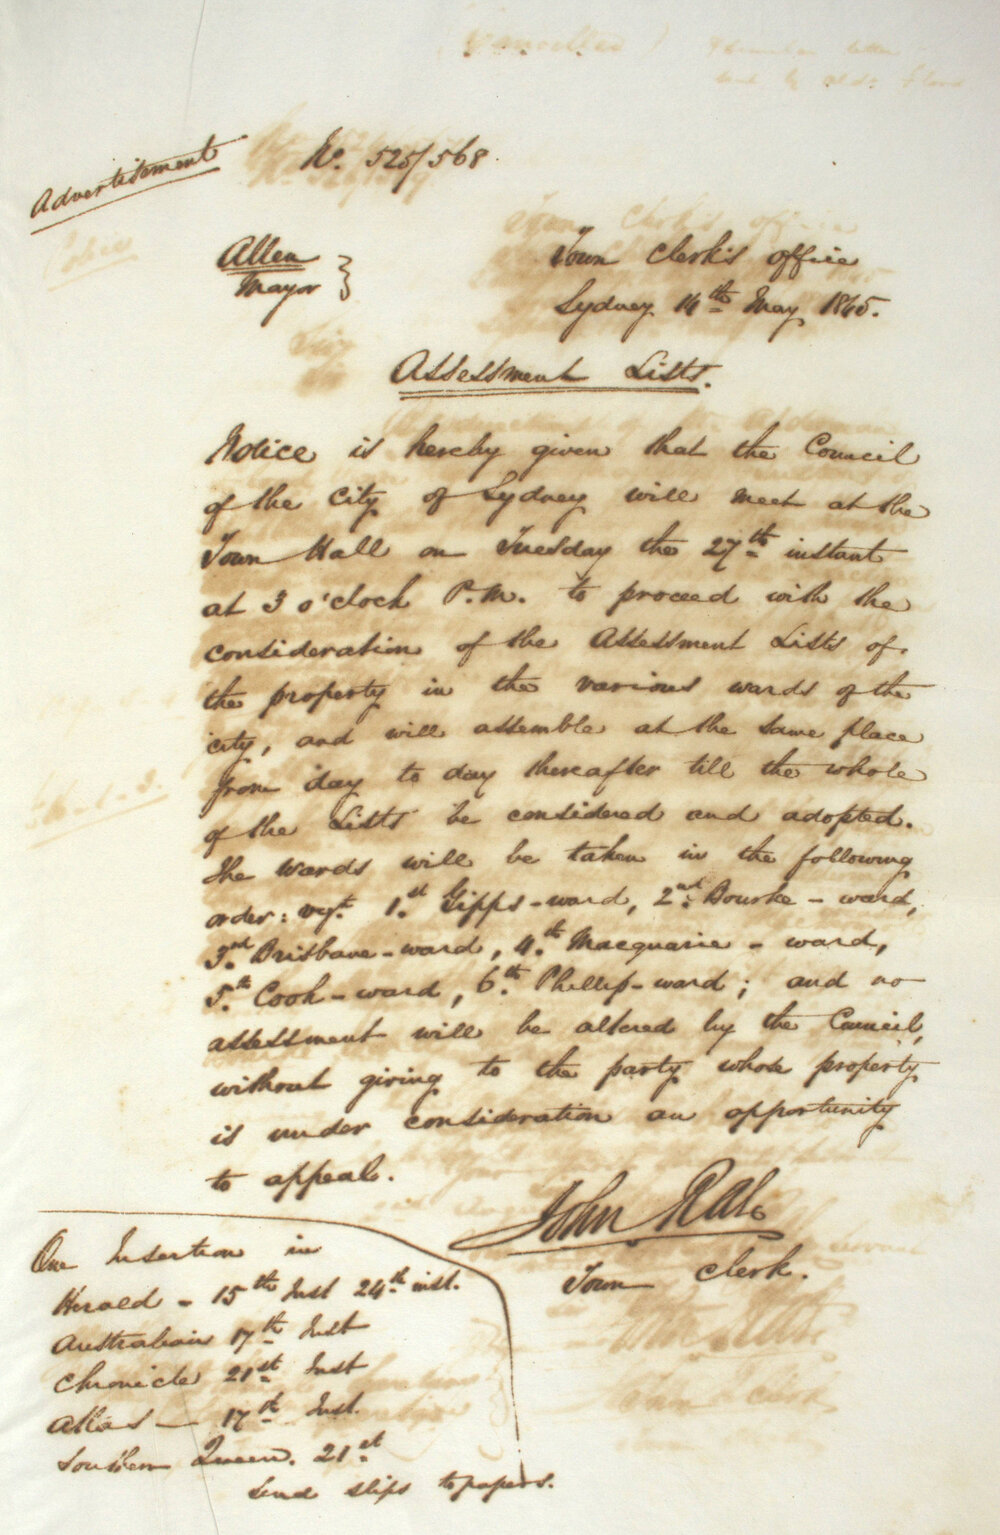 Advertisement
No. 525/568.
Allen
Mayor
Town Clerk's office
Sydney 14th May 1845.
Assessment Lists.
Notice is hereby given that the Council
of the City of Sydney will meet at the
Town Hall on Tuesday the 27th instant
at 3 o'clock P.M. to proceed with the
consideration of the Assessment Lists of
the property in the various wards of the
city, and will assemble at the same place
from day to day thereafter till the whole
of the Lists be considered and adopted.
The wards will be taken in the following
order: vizt. 1.st Gipps-ward, 2.nd Bourke-ward,
3.nd Brisbane-ward, 4.th Macquarie-ward,
5.th Cook-ward, 6.th Phillip-ward; and no
assessment will be altered by the Council,
without giving to the party whose property
is under consideration an opportunity
to appeal.
John Rae
Town Clerk.
One Insertion in
Herald - 15th Inst 24th inst.
Australian 17th Inst
Chronicle 21st Inst
Atlas - 17th Inst.
Southern Queen. 21st
Send slips to papers.